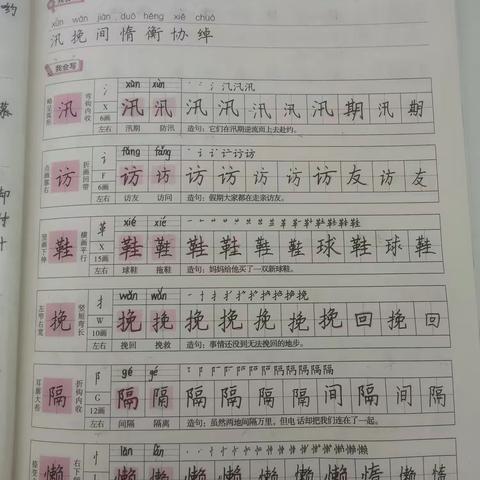 约
xùn wǎn jiàn duò héng xié chuò
汛 挽 间 惰 衡 协 绰
我会写
略呈弧形 汛 弯钩内收
氵 X 6画 左右
xùn xùn
汛 汛 汛 汛 汛 汛 汛 期 汛 期
汛期 防汛 造句：它们在汛期逆流而上去赴约。
点画靠右 访 折画回带
讠 F 6画 左右
fǎng fǎng
访 访 访 访 访 访 访 友 访 友
访友 访问 造句：假期大家都在走亲访友。
竖画下伸 鞋 横画平行
革 X 15画 左右
xié xié
鞋 鞋 鞋 鞋 鞋 鞋 鞋 球 鞋 球
球鞋 拖鞋 造句：妈妈给他买了一双新球鞋。
左窄右宽 挽 竖短弯长
扌 W 10画 左右
wǎn wǎn
挽 挽 挽 挽 挽 挽 挽 回 挽 回
挽回 挽救 造句：事情还没到无法挽回的地步。
隔 折钩内收
阝 G 12画 左右
gé gé
隔 隔 隔 隔 隔 隔 隔 间 隔 间 隔
间隔 隔离 造句：虽然两地间隔万里，但电话却把我们连在了一起。
懒
忄 L
lǎn lǎn
懒 懒 懒 懒 懒 懒 懒 惰 懒 惰